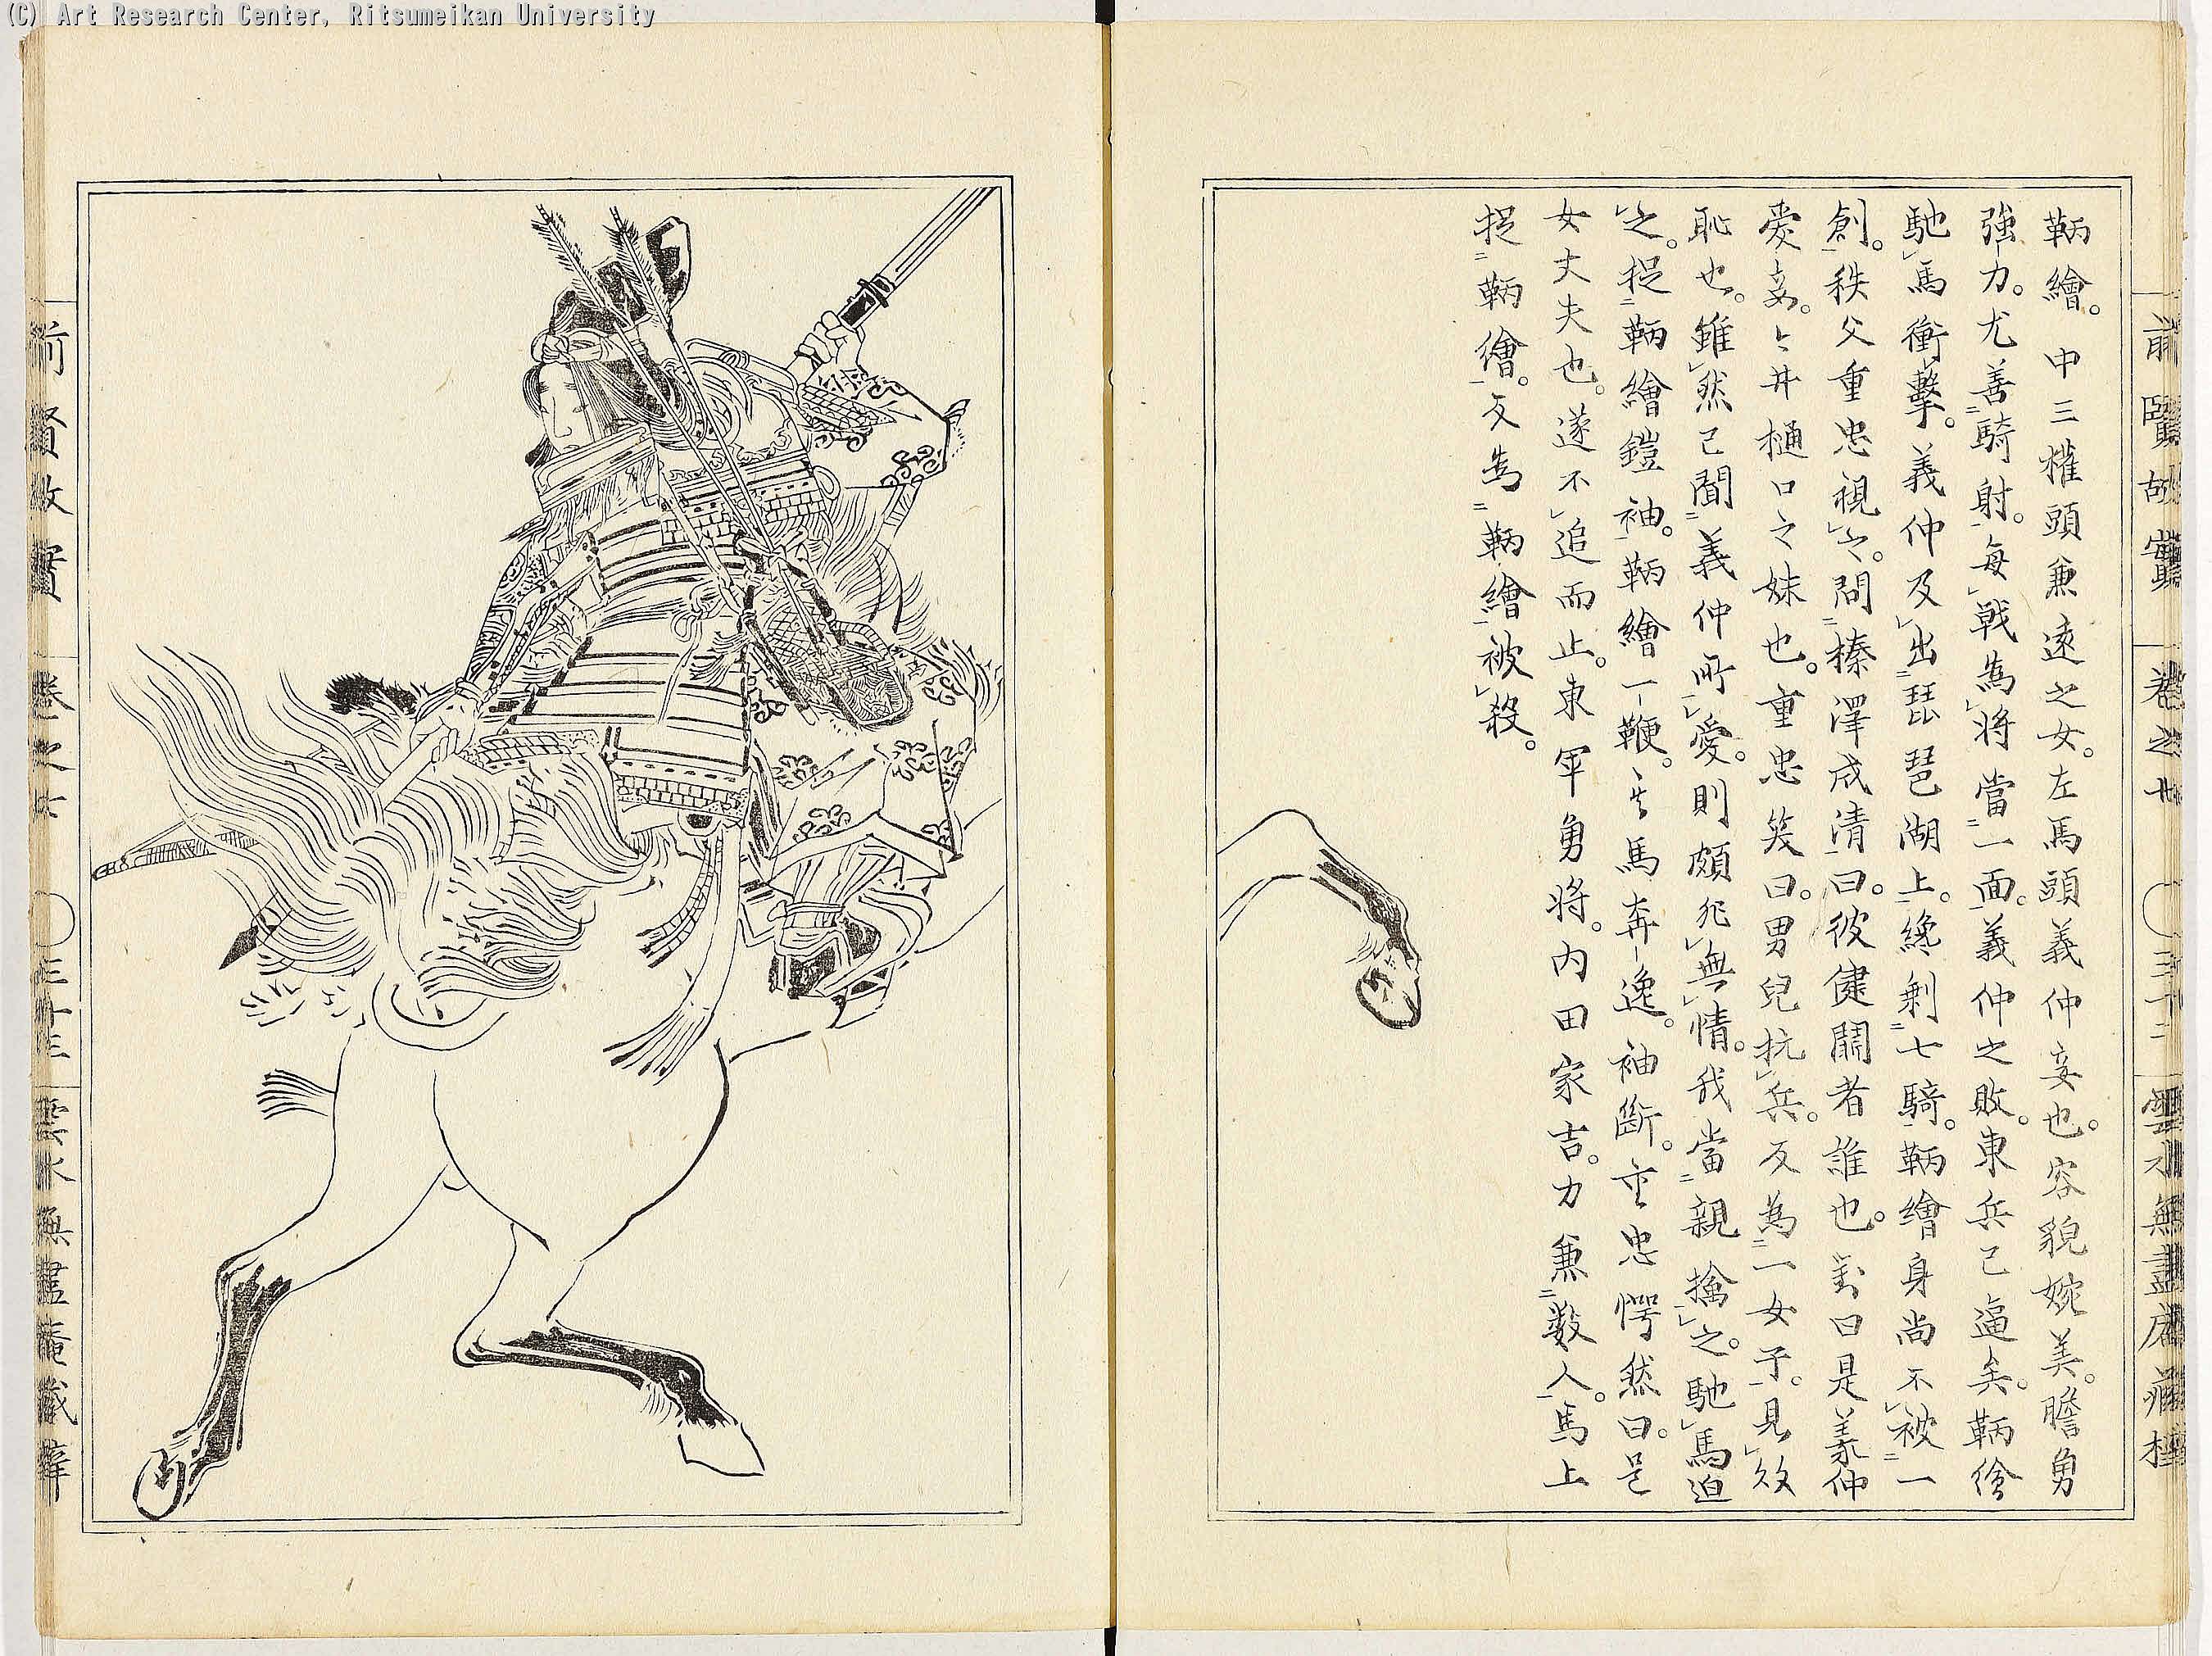 (C) Art Research Center, Ritsumeikan University
前賢故實 卷之 雲水無盡庵藏梓
鞆繪。 中三權頭兼遠之女。左馬頭義仲妾也。容貌婉美。膽勇
強力。尤善騎射。每戰為將當一面。義仲之敗。東兵已逼矣。鞆繪
馳馬衝擊。義仲及出琵琶湖上。纔剩七騎。鞆繪身尚不被一
創。秩父重忠視之。問榛澤成清曰。彼健鬪者誰也。對曰是義仲
愛妾。今井樋口之妹也。重忠笑曰。男兒抗兵。反為一女子。見敗
恥也。雖然已聞義仲所愛。則頗非無情。我當親擒之。馳馬迫
之。捉鞆繪鎧袖。鞆繪一鞭。其馬奔逸。袖斷。重忠愕然曰。是
女丈夫也。遂不追而止。東軍勇將。內田家吉。力兼數人。馬上
捉鞆繪。反為鞆繪被殺。
前賢故實 卷之 三十三 雲水無盡庵藏梓